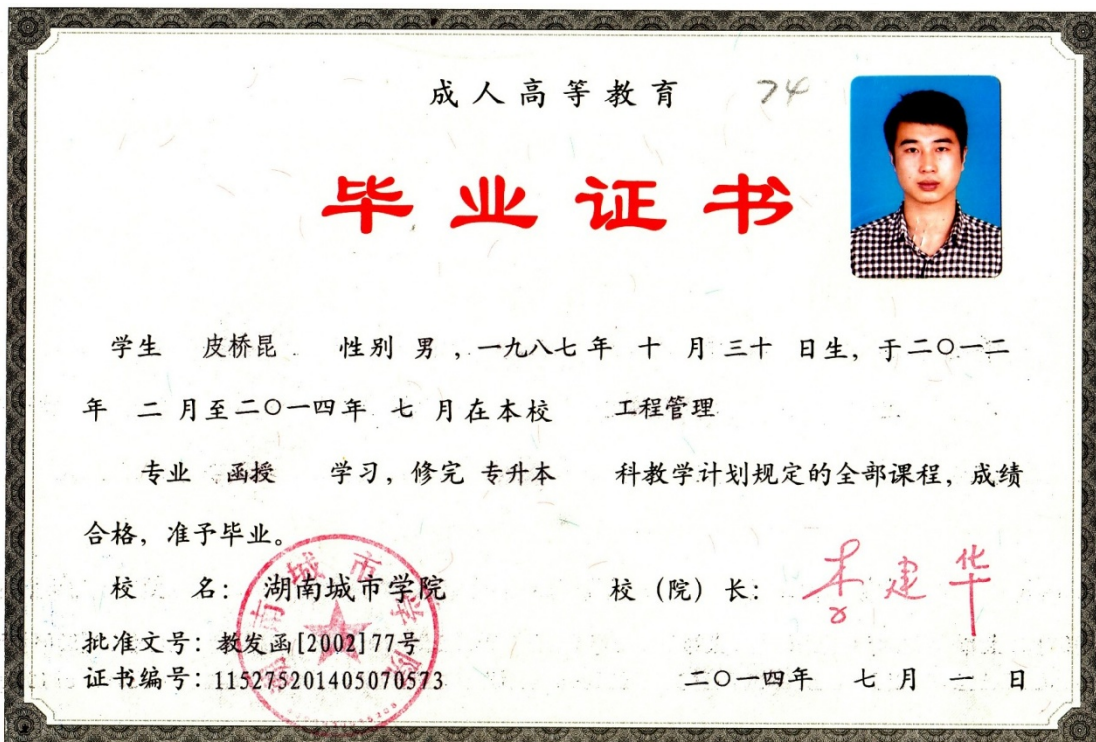 成人高等教育 74
毕业证书
学生 皮桥昆 性别 男 ,一九八七年 十 月 三十 日生,于二〇一二
年 二 月至二〇一四年 七 月在本校 工程管理
专业 函授 学习,修完 专升本 科教学计划规定的全部课程,成绩
合格,准予毕业。
校 名: 湖南城市学院 校(院)长: 李建华
批准文号:教发函[2002]77号
证书编号:115275201405070573 二〇一四年 七 月 一 日
湖南城市学院